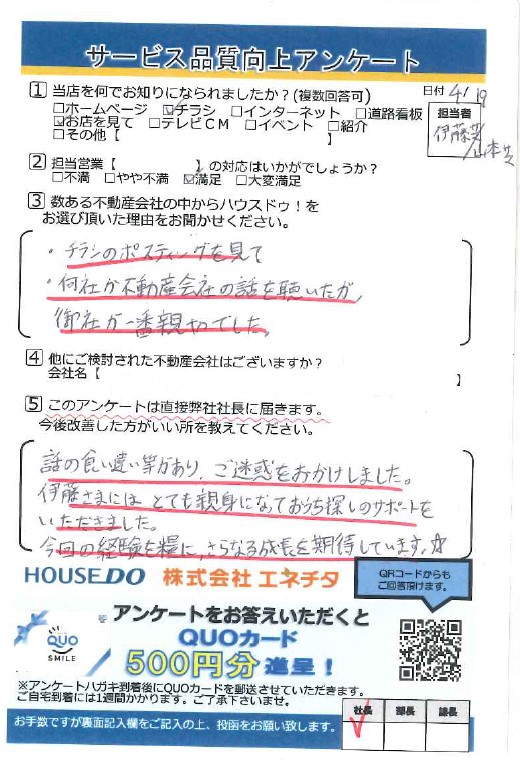 サービス品質向上アンケート
日付 4/19
1 当店を何でお知りになられましたか？(複数回答可)
□ホームページ ☑チラシ □インターネット □道路看板
☑お店を見て □テレビCM □イベント □紹介
□その他【 】
担当者
伊藤
2 担当営業【 】の対応はいかがでしょうか？
□不満 □やや不満 ☑満足 □大変満足
3 数ある不動産会社の中からハウスドゥ！を
お選び頂いた理由をお聞かせください。
・チラシのポスティングを見て
・何社か不動産会社の話を聴いたが、
御社が一番親切でした。
4 他にご検討された不動産会社はございますか？
会社名【 】
5 このアンケートは直接弊社社長に届きます。
今後改善した方がいい所を教えてください。
話の食い違い等があり、ご迷惑をおかけしました。
伊藤さまにはとても親身になっておうち探しのサポートを
いただきました。
今回の経験を糧に、さらなる成長を期待しています。☆
HOUSEDO 株式会社 エネチタ
QRコードからも
ご回答頂けます。
アンケートをお答えいただくと
QUOカード
500円分 進呈！
QUO
SMILE
※アンケートハガキ到着後にQUOカードを郵送させていただきます。
ご自宅到着には1週間かかります。ご了承下さいませ。
お手数ですが裏面記入欄をご記入の上、投函をお願い致します。
社長 部長 課長